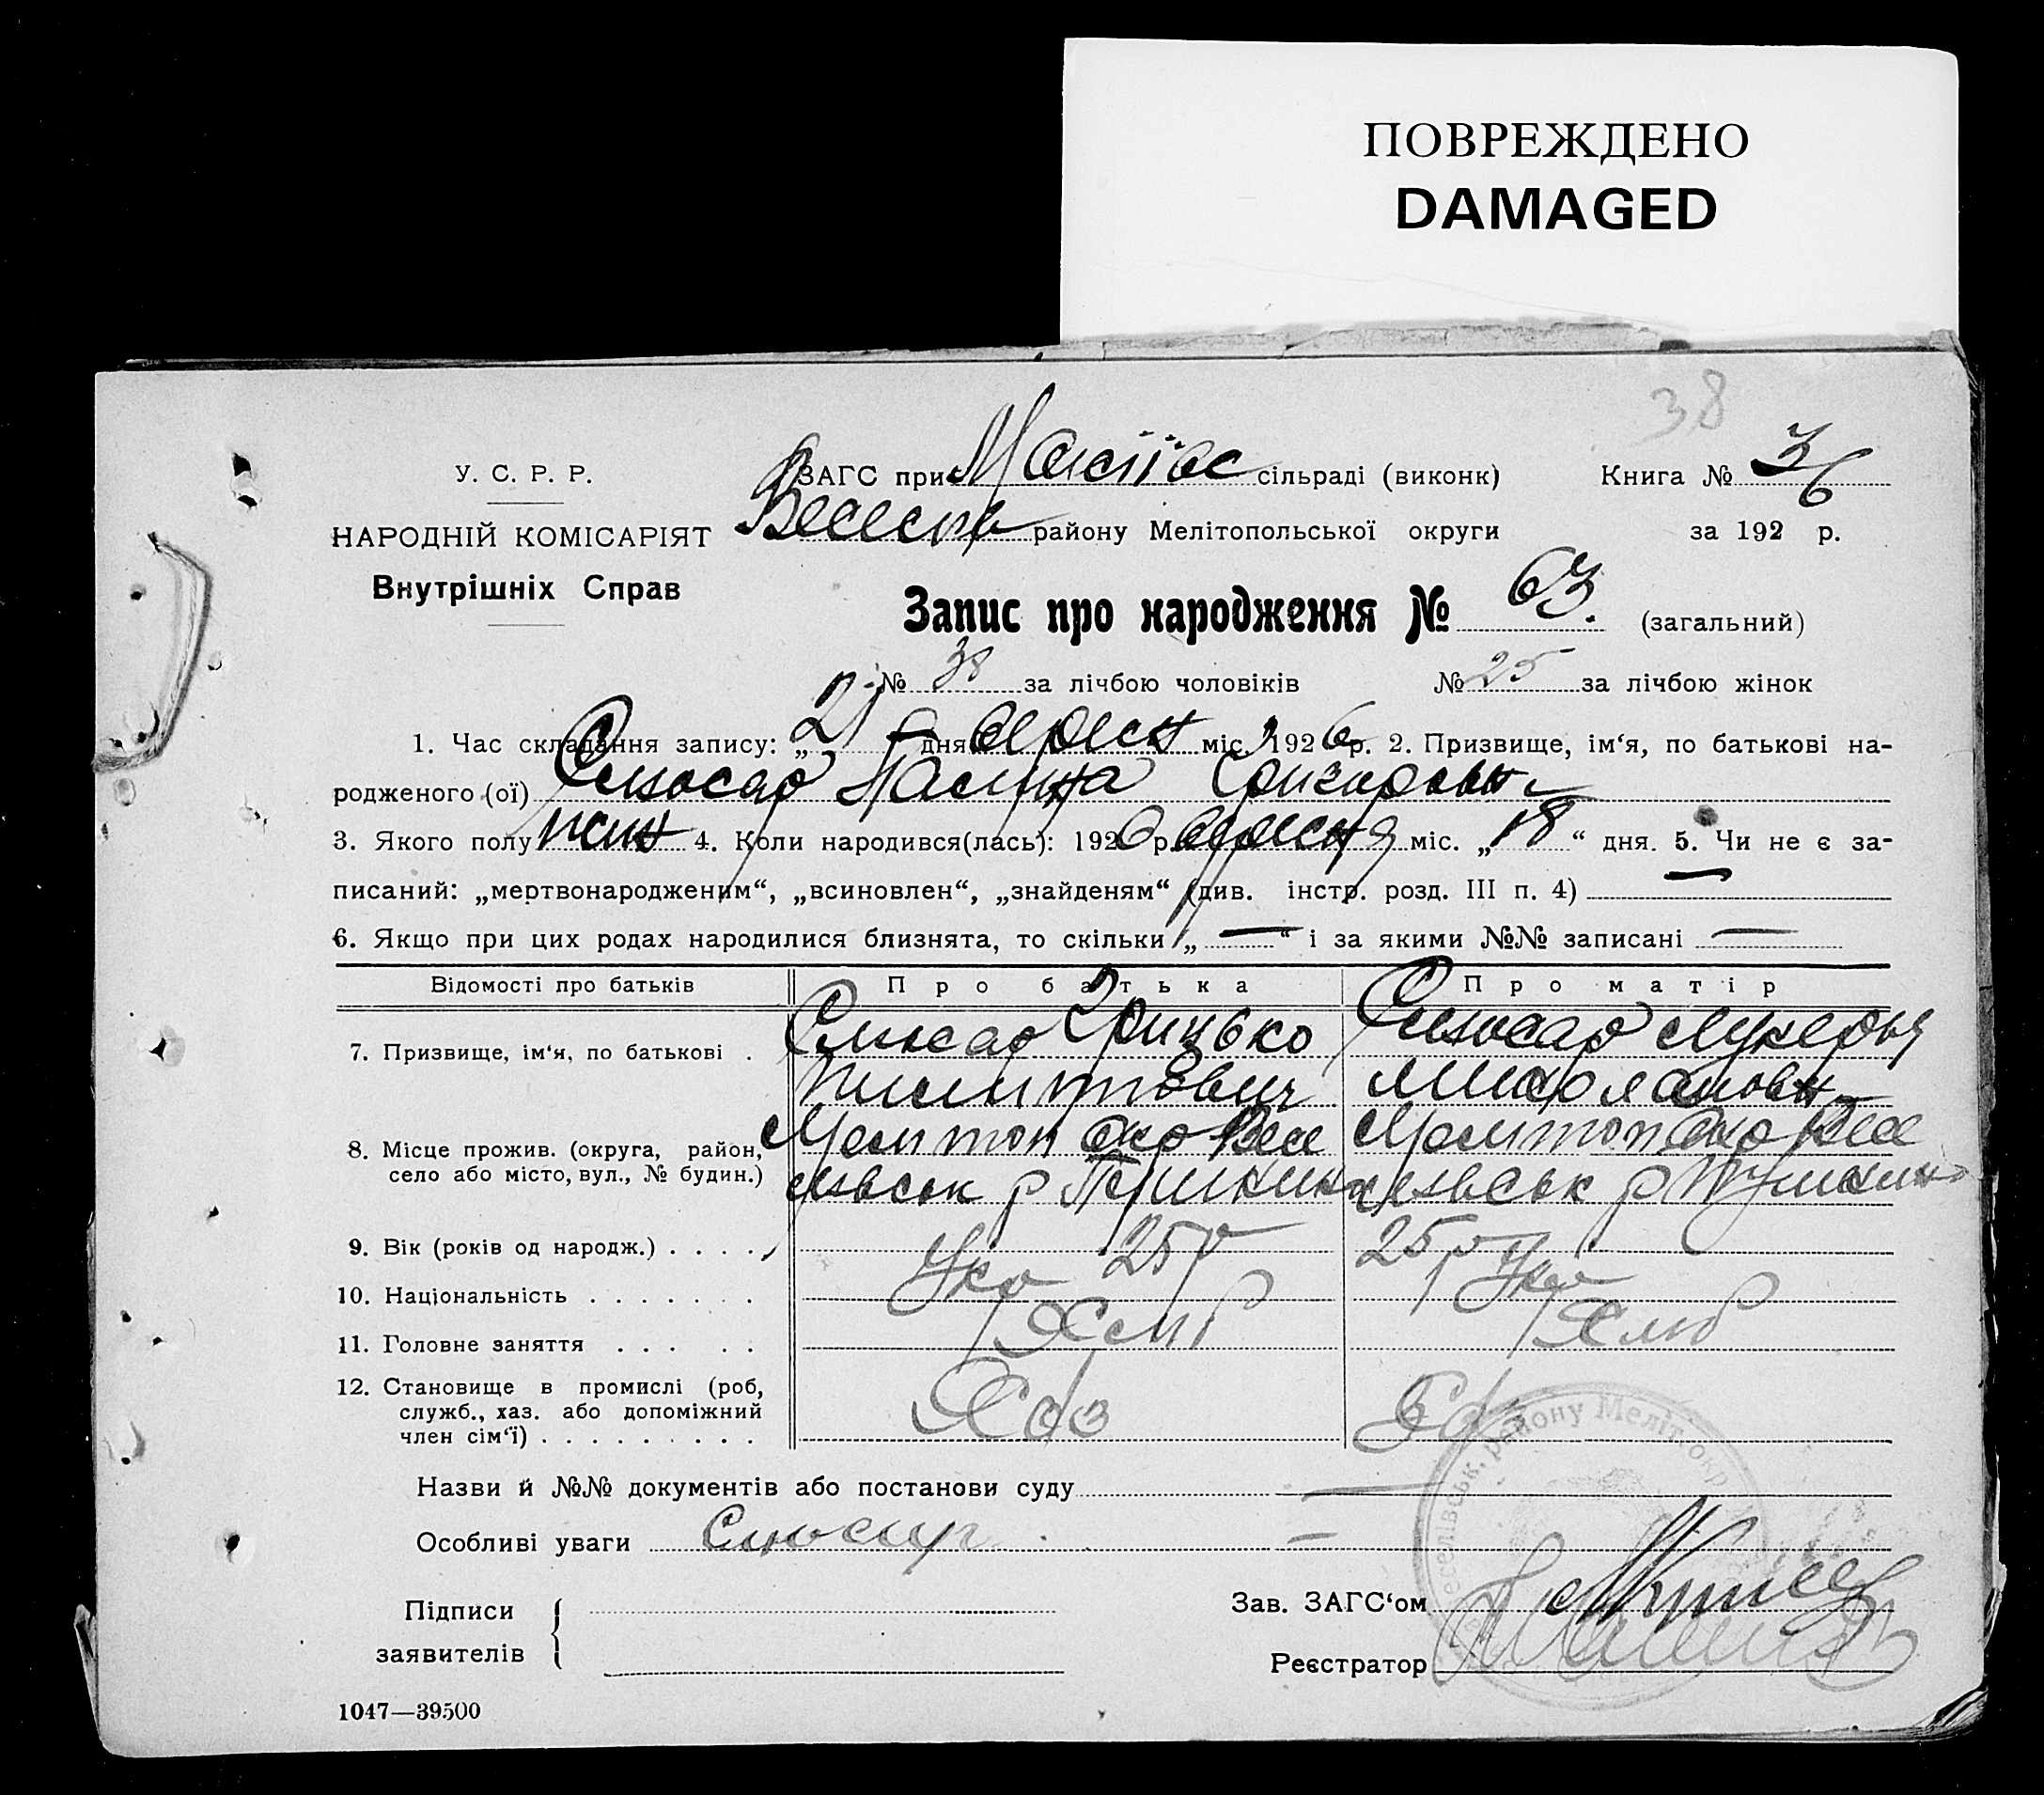 ПОВРЕЖДЕНО
DAMAGED
38
У. С. Р. Р.
ЗАГС при сільраді (виконк)
Книга № 3
НАРОДНІЙ КОМІСАРІЯТ
району Мелітопольської округи
за 192 6 р.
Внутрішніх Справ
Запис про народження № 63. (загальний)
№ 38 за лічбою чоловіків № 25 за лічбою жінок
1. Час складання запису: „21 дня вересн міс. 1926 р. 2. Призвище, ім‘я, по батькові на-
родженого (ої) Слюсар
3. Якого полу жін 4. Коли народився(лась): 1926 р. вересня міс. „18“ дня. 5. Чи не є за-
писаний: „мертвонародженим“, „всиновлен“, „знайденям“ (див. інстр. розд. III п. 4) —
6. Якщо при цих родах народилися близнята, то скільки „—“ і за якими №№ записані —
Відомості про батьків Про батька Про матір
7. Призвище, ім‘я, по батькові . Слюсар Грицько Слюсар Лукерья
8. Місце прожив. (округа, район, Мелітоп окр Весе Мелітоп окр Весе
село або місто, вул., № будин.) лівськ р Пушкіно лівськ р Пушкіно
9. Вік (років од народж.) . . . . 25 р 25 р
10. Національність . . . . . . . Укр Укр
11. Головне заняття . . . . . Хліб Хліб
12. Становище в промислі (роб,
служб., хаз. або допоміжний
член сім‘ї) . . . . . . . . .
Назви й №№ документів або постанови суду —
Особливі уваги —
Підписи
заявителів
Зав. ЗАГС‘ом
Реєстратор
району Меліт. окр.
1047—39500